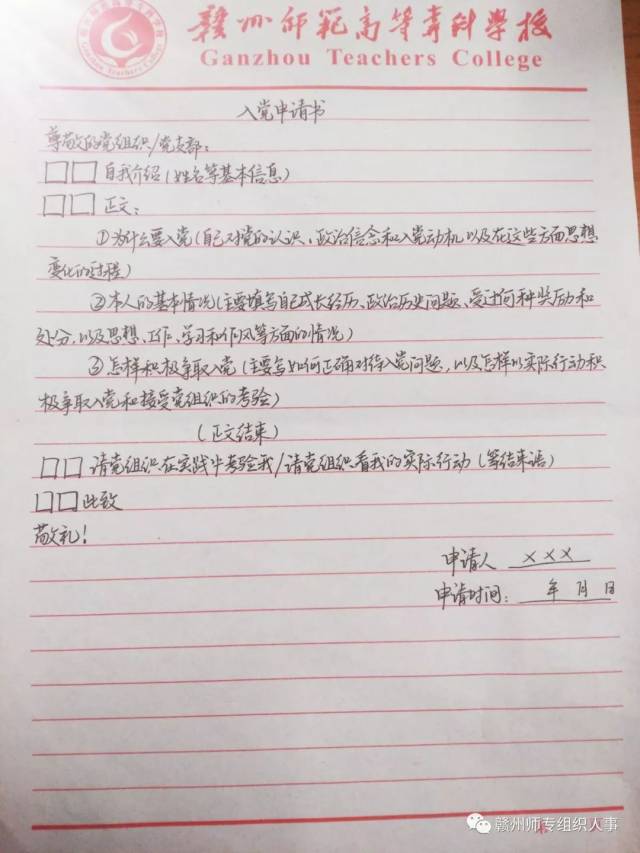 赣州师范高等专科学校
Ganzhou Teachers College
入党申请书
尊敬的党组织/党支部:
□□自我介绍(姓名等基本信息)
□□正文:
①为什么要入党(自己对党的认识、政治信念和入党动机以及在这些方面思想
变化的过程)
②本人的基本情况(主要填写自己成长经历、政治历史问题、受过何种奖励和
处分,以及思想、工作、学习和作风等方面的情况)
③怎样积极争取入党(主要写如何正确对待入党问题,以及怎样以实际行动积
极争取入党和接受党组织的考验)
(正文结束)
□□请党组织在实践中考验我/请党组织看我的实际行动(等结束语)
□□此致
敬礼!
申请人 ×××
申请时间: 年 月 日
赣州师专组织人事